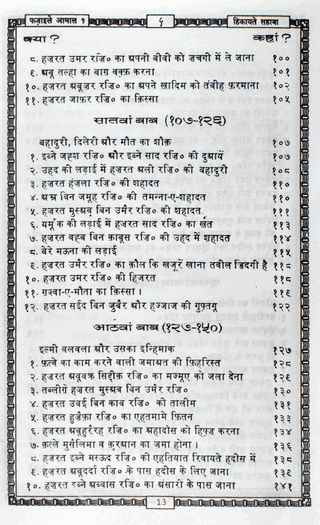 फ़ज़ाइले आमाल १ ६ हिकायाते सहाबा
क्या ? कहां ?
८. हज़रत उमर रज़ि० का अपनी बीवी को ज़चगी में ले जाना १००
९. अबू तल्हा का बाग़ वक़्फ़ करना १०१
१०. हज़रत अबूज़र रज़ि० का अपने ख़ादिम को तंबीह फ़रमाना १०२
११. हज़रत जाफ़र रज़ि० का क़िस्सा १०५
सातवां बाब (१०७-१२६)
बहादुरी, दिलेरी और मौत का शौक़ १०७
१. इब्ने जह्श रज़ि० और इब्ने साद रज़ि० की दुआयें १०७
२. उहद की लड़ाई में हज़रत अली रज़ि० की बहादुरी १०८
३. हज़रत हंज़ला रज़ि० की शहादत ११०
४. अम्र बिन जमूह रज़ि० की तमन्ना-ए-शहादत ११०
५. हज़रत मुसअब बिन उमैर रज़ि० की शहादत १११
६. यर्मूक की लड़ाई में हज़रत साद रज़ि० का ख़त ११३
७. हज़रत वह्ब बिन क़ाबूस रज़ि० की उहद में शहादत ११४
८. बेरे मऊना की लड़ाई ११५
९. हज़रत उमैर रज़ि० का क़ौल कि खजूरें खाना तवील ज़िंदगी है ११८
१०. हज़रत उमर रज़ि० की हिजरत ११८
११. ग़ज़्वा-ए-मौता का क़िस्सा। ११९
१२. हज़रत सईद बिन जुबैर और हज्जाज की गुफ़्तगू १२२
आठवां बाब (१२७-१५०)
इल्मी वलवला और उसका इन्हिमाक १२७
१. फ़त्वे का काम करने वाली जमाअत की फ़िहरिस्त १२८
२. हज़रत अबूबक्र सिद्दीक़ रज़ि० का मज्मूए को जला देना १२९
३. तब्लीग़े हज़रत मुसअब बिन उमैर रज़ि० १३०
४. हज़रत उबई बिन काब रज़ि० की तालीम १३१
५. हज़रत हुज़ैफ़ा रज़ि० का एहतमामे फ़ितन १३३
६. हज़रत अबूहुरैरह रज़ि० का अहादीस को हिफ़्ज़ करना १३४
७. क़त्ले मुसैलिमा व क़ुरआन का जमा होना। १३६
८. हज़रत इब्ने मस्ऊद रज़ि० की एहतियात रिवायते हदीस में १३८
९. हज़रत अबूदर्दा रज़ि० के पास हदीस के लिए जाना १३९
१०. हज़रत इब्ने अब्बास रज़ि० का अंसारी के पास जाना १४१
13